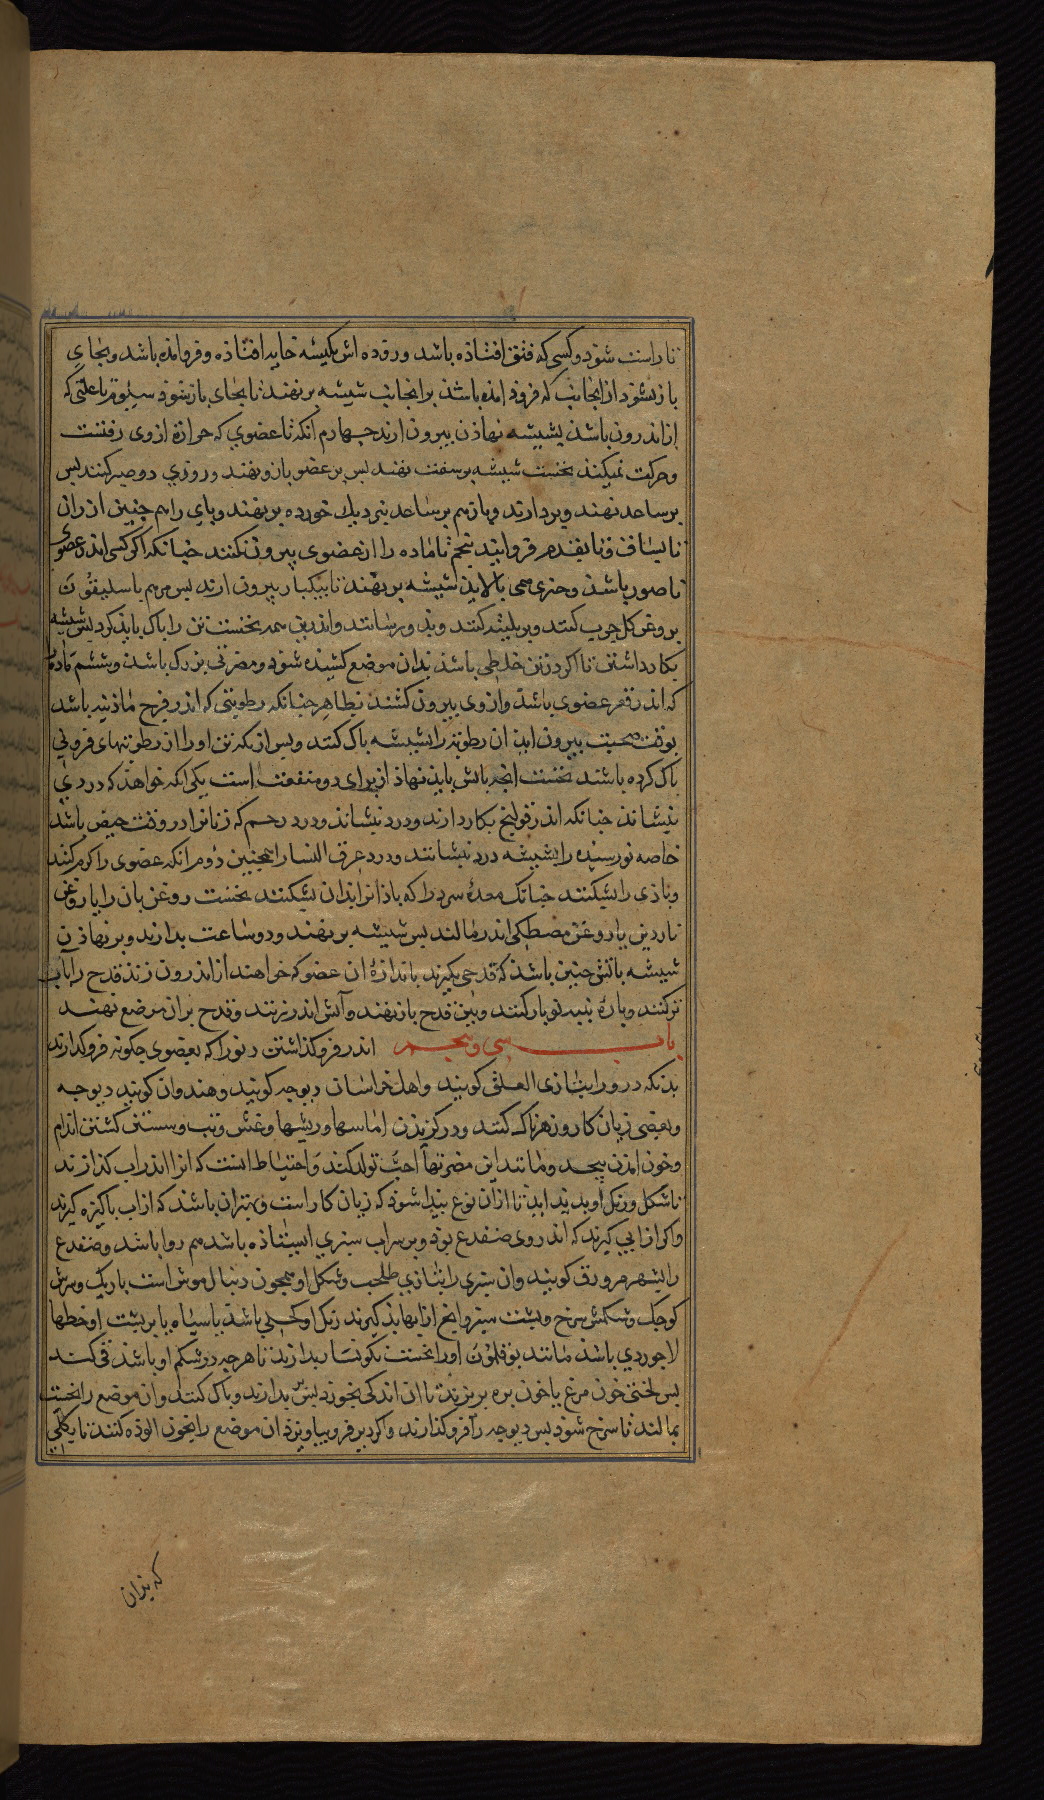 تا راست شود و کسی که فتق افتاذه باشد و روده اش بکیسه خایه افتاذه و فرو امذه باشد و بجای
باز نشوذ از انجانب که فروذ امذه باشذ بر انجانب شیشه بر نهند تا بجای باز شوذ سیوم تا علتی که
از اندرون باشذ بشیشه نهاذن بیرون ارند چهارم انکه تا عضوی که حرارة از وی رفتست
و حرکت نمیکند نخست شیشه بر سفت نهند بس بر عضو بازو نهند و روزی دو صبر کنند بس
بر ساعد نهند و بردارند و باز هم بر ساعد بنزدیک خورده بر نهند و بای را هم چنین از ران
تا بساق و تا بقدم فرو ایند پنجم تا ماده را از عضوی بیرون کنند چنانکه اکر کسی اندر عضوی
ناصور باشذ و چیزی همی بالاید شیشه بر نهند تا بیکبار بیرون ارند بس مرهم باسلیقون
بروغن کل چرب کنند و بر بلیته کنند و بذو رسانند و اندرین همه نخست تن را باک باید کرد بس شیشه
بکار داشتن تا اکر در تن خلطی باشذ بدان موضع کشیذه نشوذ و مضرتی بزرک باشذ و ششم ماده
که اندر قعر عضوی باشد و از وی بیرون کشند بظاهر چنانکه رطوبتی که اندر فرج ماذینه باشد
بوقت صحبت بیرون اید ان رطوبة را بشیشه باک کنند و بس از بکه تن او را از رطوبتهای فزونی
باک کرده باشند نخست انچه باتش بایذ نهاذ از برای دو منفعت است یکی انکه خواهذ که دردی
بنشانذ چنانکه اندر قولنج بکار دارند و درد بنشاند و درد رحم که زنانرا در وقت حیض باشذ
خاصه نو رسیذه را بشیشه درد بنشانند و درد عرق النسا را همچنین دوم انکه عضوی را کرم کنند
و باذی را بشکنند چنانک معدهٔ سرد را که باذانرا بدان بشکنند نخست روغن بان را با روغن
ناردین یا روغن مصطکی اندر مالند بس شیشه بر نهند و دو ساعت بدارند و بر نهاذن
شیشه باتش چنین باشذ که قدحی بکیرند باندازهٔ ان عضو که خواهند از اندرون زند قدح را باب
تر کنند و پارهٔ بنبه نو بار کنند و ببن قدح باز نهند و آتش اندر زنند و قدح بران موضع نهند
باب سی و پنجم اندر فرو کذاشتن دیو را که بعضوی چکونه فرو کذارند
بدنکه دیو را بتازی العلق کویند و اهل خراسان دیوجه کویند و هندوان کویند دیوجه
و بعضی زیان کار و زهرناک کنند و در کزیذن اماسها و ریشها و غش و تب و سستن کشتن اندام
و خون امذن بیحد و مانند این مضرتها احب تولد کند و احتیاط انست که انرا اندر اب کذارند
تا شکل و رنک او بدیذ ایذ تا از ان نوع بیدا شوذ که زیان کار است و بهتر ان باشذ که از اب باکیزه کیرند
و اکر از ابی کیرند که اندر وی ضفدع بوذ و بر سر اب سبزی ایستاذه باشد هم روا باشد و ضفدع
را بشهر مرو رق کویند وان سبزی را بتازی طحلب و شکل او همچون دنبال موش است باریک و سرش
کوچک و شکمش سرخ و بشت سبز و انچ از ابها بذ کیرند رنک او کحلی باشذ یا سیاه یا بر بشت او خطها
لاجوردی باشذ مانند بوقلون اورا نخست نکونسار بدارند تا هرچه در شکم او باشذ قی کند
بس لختی خون مرغ یا خون بره بریزند تا ان اندکی بخورد بس بدارند و باک کنند و ان موضع را نخست
بمالند تا سرخ شوذ بس دیوجه را فرو کذارند و اکر دیر فرو بیاویزد ان موضع را بخون الوذه کنند تا یا کلی
که بدان